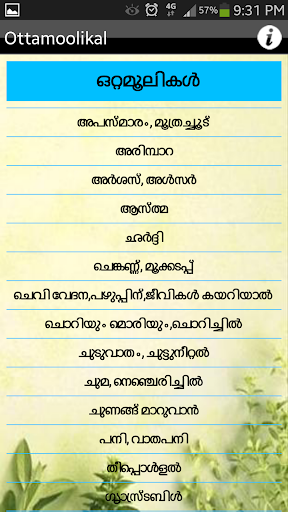 4G 57% 9:31 PM
Ottamoolikal
ഒറ്റമൂലികൾ
അപസ്മാരം, മൂത്രച്ചൂട്
അരിമ്പാറ
അർശസ്, അൾസർ
ആസ്ത്മ
ഛർദ്ദി
ചെങ്കണ്ണ്, മൂക്കടപ്പ്
ചെവി വേദന,പഴുപ്പിന്,ജീവികൾ കയറിയാൽ
ചൊറിയും മൊരിയും,ചൊറിച്ചിൽ
ചുടുവാതം, ചുട്ടുനീറ്റൽ
ചുമ, നെഞ്ചെരിച്ചിൽ
ചുണങ്ങ് മാറുവാൻ
പനി, വാതപനി
തീപ്പൊള്ളൽ
ഗ്യാസ്ട്രബിൾ